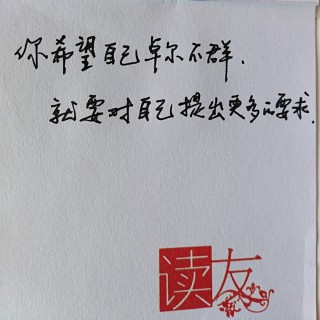 你希望自己卓尔不群.
就要对自己提出更多的要求.
读友